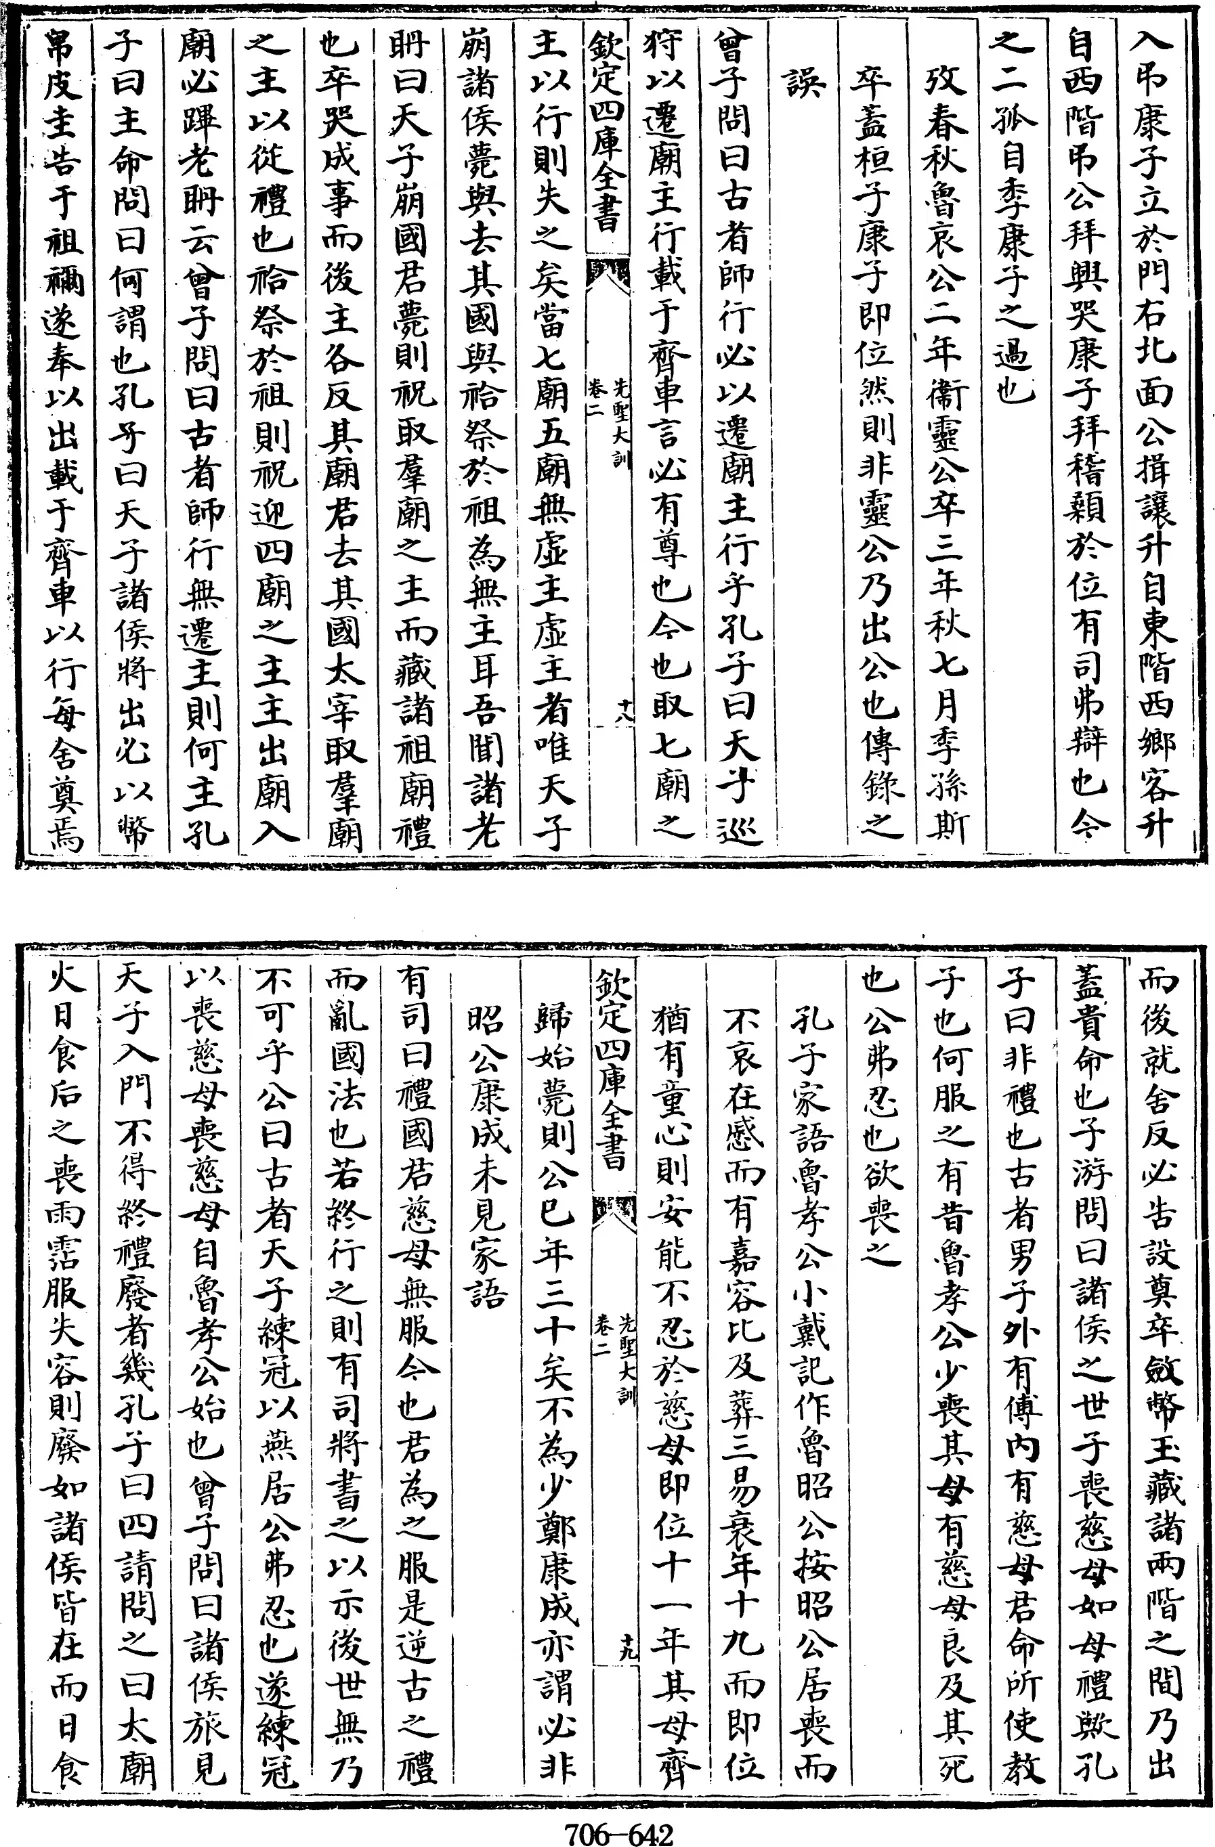 入弔康子立於門右北面公揖讓升自東階西鄉客升
自西階弔公拜興哭康子拜稽顙於位有司弗辯也今
之二孤自季康子之過也
攷春秋魯哀公二年衞靈公卒三年秋七月季孫斯
卒蓋桓子康子即位然則非靈公乃出公也傳錄之
誤
曾子問曰古者師行必以遷廟主行乎孔子曰天子巡
狩以遷廟主行載于齊車言必有尊也今也取七廟之
欽定四庫全書
先聖大訓
卷二
十八
主以行則失之矣當七廟五廟無虛主虛主者唯天子
崩諸侯薨與去其國與祫祭於祖為無主耳吾聞諸老
聃曰天子崩國君薨則祝取羣廟之主而藏諸祖廟禮
也卒哭成事而後主各反其廟君去其國太宰取羣廟
之主以從禮也祫祭於祖則祝迎四廟之主主出廟入
廟必蹕老聃云曾子問曰古者師行無遷主則何主孔
子曰主命問曰何謂也孔子曰天子諸侯將出必以幣
帛皮圭告于祖禰遂奉以出載于齊車以行每舍奠焉
而後就舍反必告設奠卒斂幣玉藏諸兩階之間乃出
蓋貴命也子游問曰諸侯之世子喪慈母如母禮歟孔
子曰非禮也古者男子外有傅內有慈母君命所使教
子也何服之有昔魯孝公少喪其母有慈母良及其死
也公弗忍也欲喪之
孔子家語魯孝公小戴記作魯昭公按昭公居喪而
不哀在慼而有嘉容比及葬三易衰年十九而即位
猶有童心則安能不忍於慈母即位十一年其母齊
欽定四庫全書
先聖大訓
卷二
十九
歸始薨則公巳年三十矣不為少鄭康成亦謂必非
昭公康成未見家語
有司曰禮國君慈母無服今也君為之服是逆古之禮
而亂國法也若終行之則有司將書之以示後世無乃
不可乎公曰古者天子練冠以燕居公弗忍也遂練冠
以喪慈母喪慈母自魯孝公始也曾子問曰諸侯旅見
天子入門不得終禮廢者幾孔子曰四請問之曰太廟
火日食后之喪雨霑服失容則廢如諸侯皆在而日食
706-642